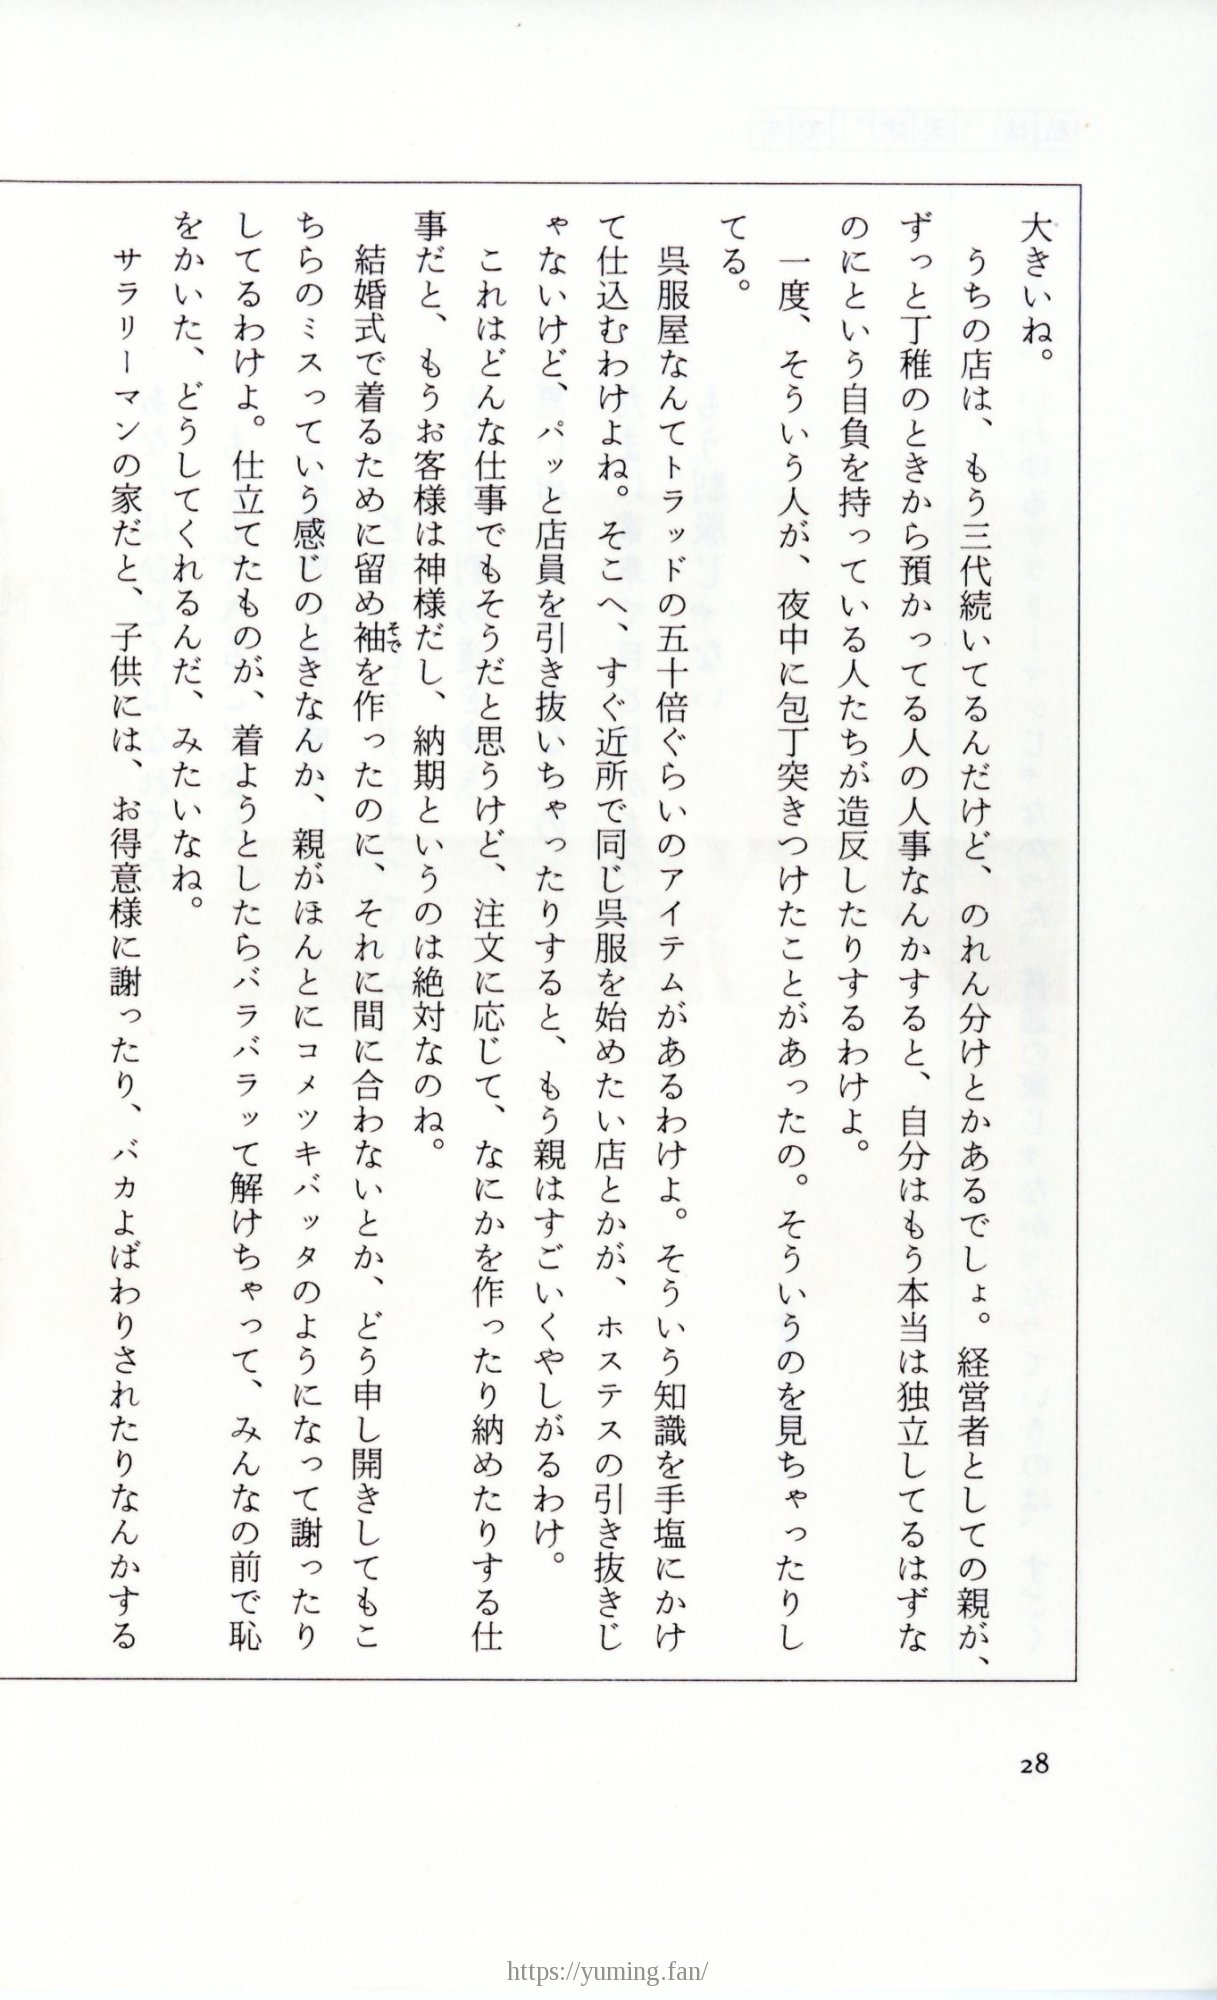 大きいね。
　うちの店は、もう三代続いてるんだけど、のれん分けとかあるでしょ。経営者としての親が、
ずっと丁稚のときから預かってる人の人事なんかすると、自分はもう本当は独立してるはずな
のにという自負を持っている人たちが造反したりするわけよ。
　一度、そういう人が、夜中に包丁突きつけたことがあったの。そういうのを見ちゃったりし
てる。
　呉服屋なんてトラッドの五十倍ぐらいのアイテムがあるわけよ。そういう知識を手塩にかけ
て仕込むわけよね。そこへ、すぐ近所で同じ呉服を始めたい店とかが、ホステスの引き抜きじ
ゃないけど、パッと店員を引き抜いちゃったりすると、もう親はすごいくやしがるわけ。
　これはどんな仕事でもそうだと思うけど、注文に応じて、なにかを作ったり納めたりする仕
事だと、もうお客様は神様だし、納期というのは絶対なのね。
　結婚式で着るために留め袖を作ったのに、それに間に合わないとか、どう申し開きしてもこ
そで
ちらのミスっていう感じのときなんか、親がほんとにコメツキバッタのようになって謝ったり
してるわけよ。仕立てたものが、着ようとしたらバラバラッて解けちゃって、みんなの前で恥
をかいた、どうしてくれるんだ、みたいなね。
　サラリーマンの家だと、子供には、お得意様に謝ったり、バカよばわりされたりなんかする
28
https://yuming.fan/